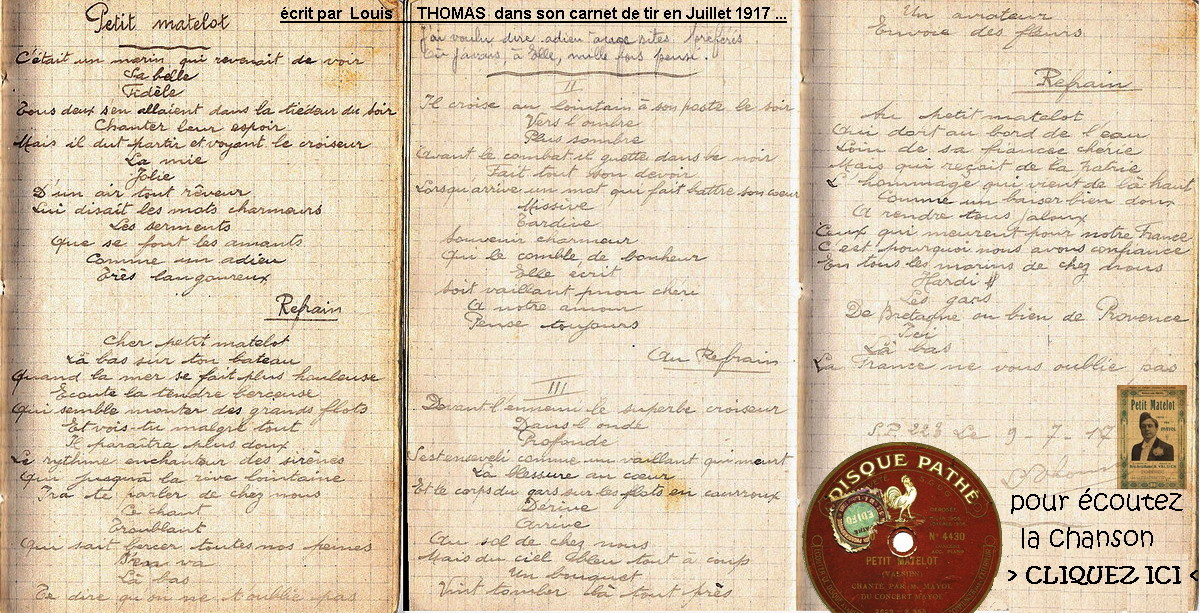 écrit par Louis THOMAS dans son carnet de tir en Juillet 1917 ...
Petit matelot
C'était un marin qui revenait de voir
Sa belle
Fidèle
Tous deux s'en allaient dans la tiédeur du soir
Chanter leur espoir
Mais il dut partir et voyant le croiseur
La mie
Jolie
D'un air tout rêveur
Lui disait les mots charmeurs
Les serments
Que se font les amants
Comme un adieu
Très langoureux
Refrain
Cher petit matelot
Là bas sur ton bateau
Quand la mer se fait plus houleuse
Ecoute la tendre berceuse
Qui semble monter des grands flots
Et vois-tu malgré tout
Il paraîtra plus doux
Le rythme enchanteur des sirènes
Qui jusqu'à la rive lointaine
Ira te parler de chez nous
Ce chant
Troublant
Qui sait bercer toutes nos peines
S'en va
Là bas
Te dire qu'on ne t'oublie pas
J'ai voulu dire adieu aux sites préférés
Où j'avais à Elle, mille fois pensé.
II
Il croise au lointain à son poste le soir
Vers l'ombre
Plus sombre
Avant le combat il guette dans le noir
Fait tout son devoir
Lorsqu'arrive un mot qui fait battre son coeur
Missive
Tardive
Souvenir charmeur
Qui le comble de bonheur
Elle écrit
Soit vaillant mon chéri
A notre amour
Pense toujours
Au Refrain
III
Devant l'ennemi le superbe croiseur
Dans l'onde
Profonde
S'est enseveli comme un vaillant qui meurt
La blessure au coeur
Et le corps du gars sur les flots en courroux
Dérive
Arrive
Au sol de chez nous
Mais du ciel bleu tout à coup
Un bouquet
Vint tomber là tout près
Un aviateur
Envoie des fleurs
Refrain
Au petit matelot
Qui dort au bord de l'eau
Loin de sa fiancée chérie
Mais qui reçoit de la Patrie
L'hommage qui vient de là haut
Comme un baiser bien doux
A rendre tous jaloux
Ceux qui meurent pour notre France
C'est pourquoi nous avons confiance
En tous les marins de chez nous
Hardi
Les gars
De Bretagne ou bien de Provence
Ici
Là bas
La France ne vous oublie pas
S.P. 223 Le 9-7-17
L Thomas
Petit Matelot
MAYOL
DISQUE PATHÉ
N° 4430
PETIT MATELOT
(VALSINI)
CHANTÉ PAR M. MAYOL
DU CONCERT MAYOL
pour écoutez
la Chanson
> CLIQUEZ ICI <